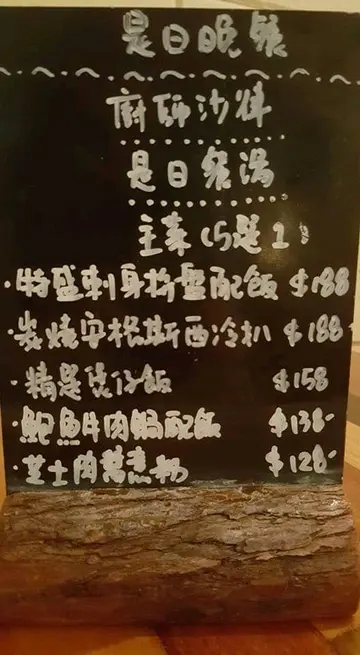 是日晚餐
廚師沙律
是日餐湯
主菜 (5選1)
·特盛刺身拼盤配飯 $188
·炭燒安格斯西冷扒 $188-
·精選煲仔飯 $158
·鮑魚牛肉鍋配飯 $138-
·芝士肉醬焗 $128-